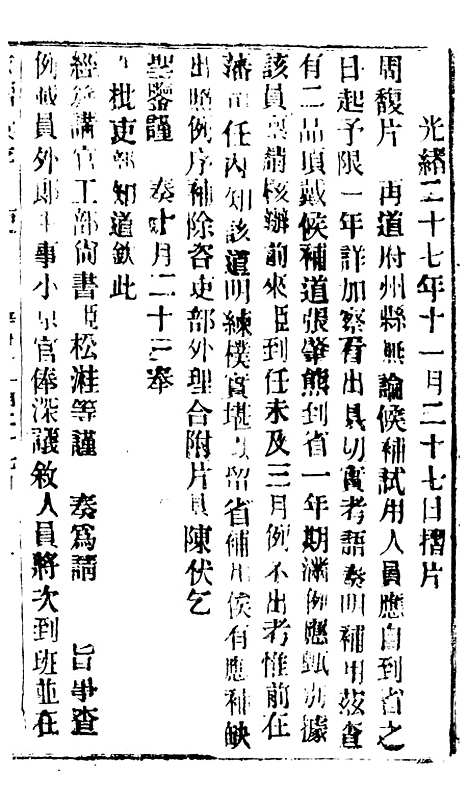 光緒二十七年十一月二十七日摺片
周馥片 再道府州縣無論候補試用人員應自到省之
日起予限一年詳加察看出具切實考語奏明補用茲查
有二品頂戴候補道張肇熊到省一年期滿例應甄別據
該員稟請核辦前來臣到任未及三月例不出考惟前在
藩司任內知該道明練樸實堪以留省補用俟有應補缺
出照例序補除咨吏部外理合附片具陳伏乞
聖鑒謹 奏十月二十三奉
批吏部知道欽此
經筵講官工部尚書臣松溎等謹 奏為請 旨事查
例載員外郎主事小京官俸深議敘人員將次到班並在